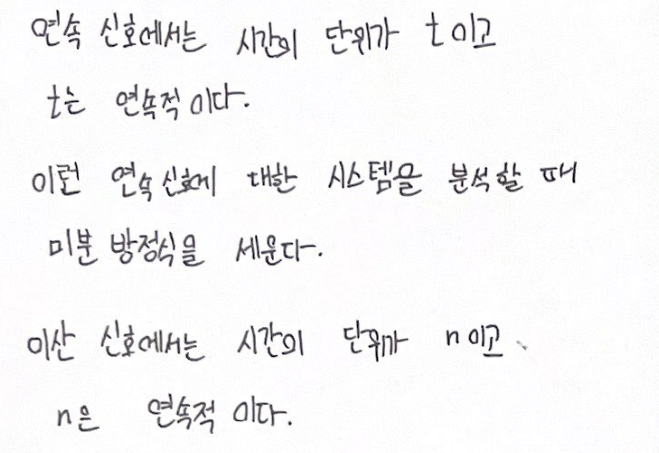 연속 신호에서는 시간의 단위가 t이고
t는 연속적이다.
이런 연속 신호에 대한 시스템을 분석할 때
미분 방정식을 세운다.
이산 신호에서는 시간의 단위가 n이고
n은 연속적이다.